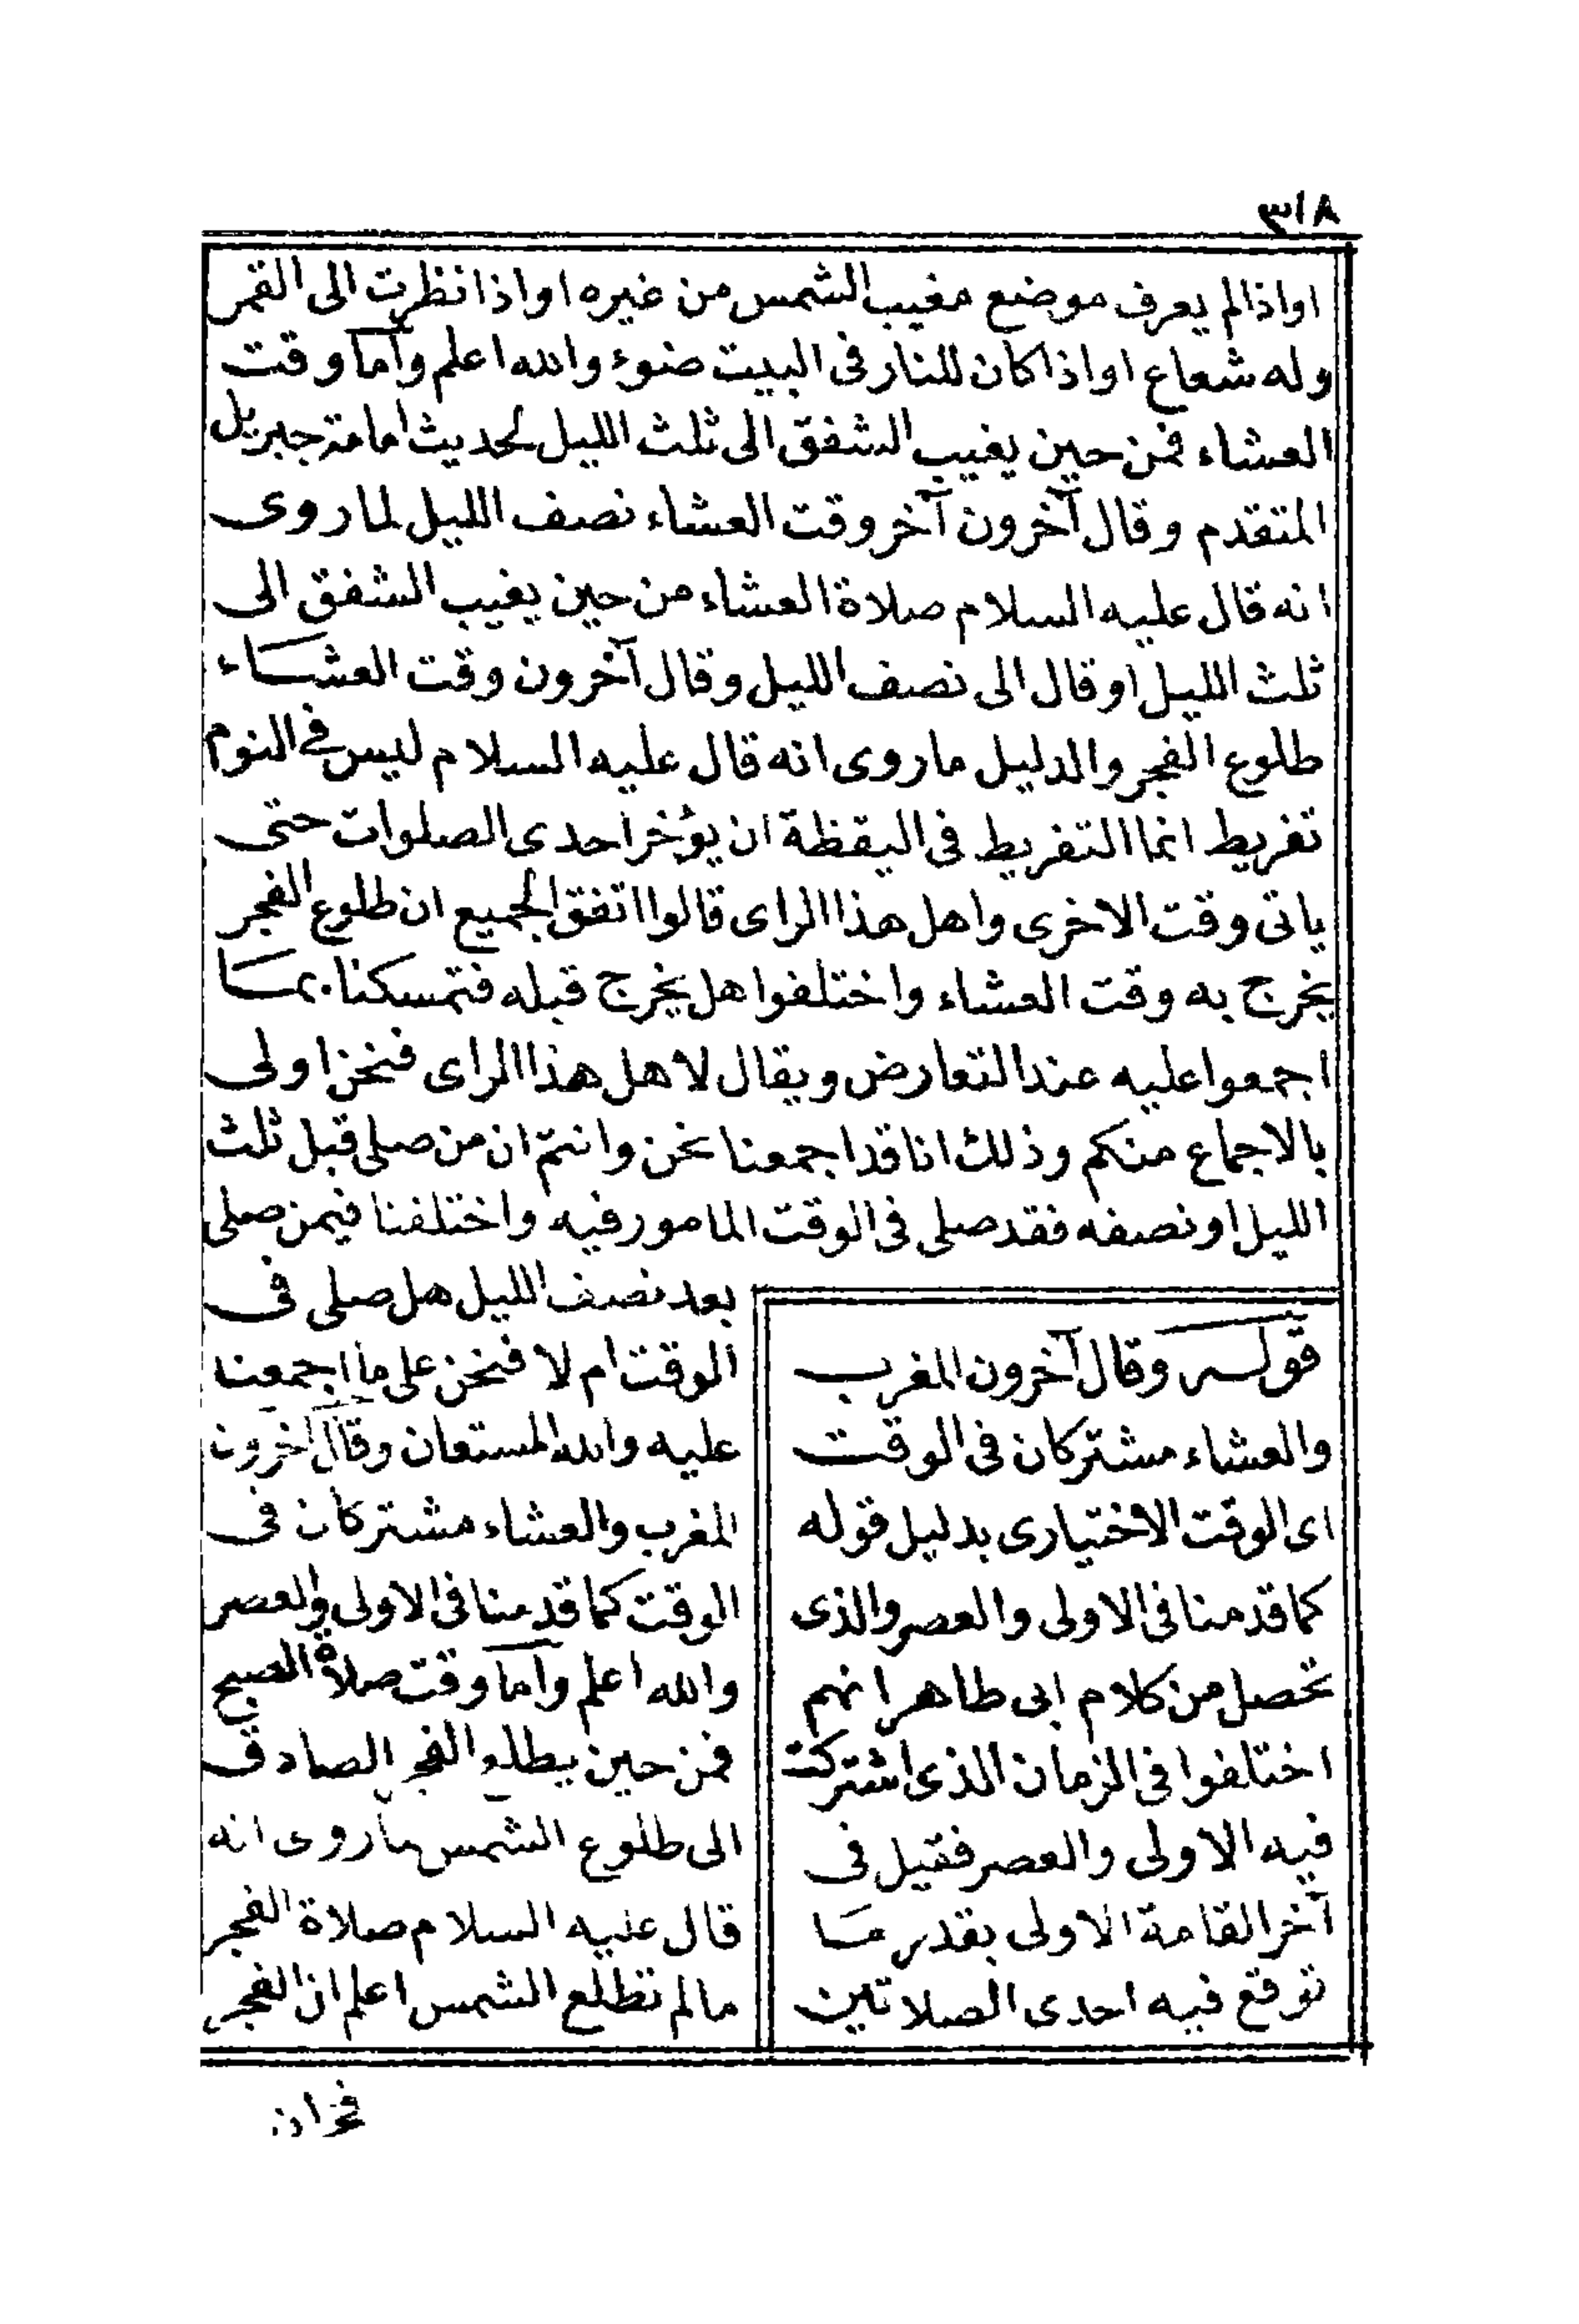 ٣١٨
اواذالم يعرف موضع مغيب الشمس من غيره اواذا نظرت الى القمر
وله شعاع اواذا كان للنار فى البيت ضوء والله اعلم وأما وقت
العشاء فمن حين يغيب الشفق الى ثلث الليل لحديث امامة جبريل
المتقدم وقال آخرون آخر وقت العشاء نصف الليل لما روى
انه قال عليه السلام صلاة العشاء من حين يغيب الشفق الى
ثلث الليل او قال الى نصف الليل وقال آخرون وقت العشاء
طلوع الفجر والدليل ما روى انه قال عليه السلام ليس فى النوم
تفريط انما التفريط فى اليقظة ان يؤخر احدى الصلوات حتى
ياتى وقت الاخرى واهل هذا الراى قالوا اتفق الجميع ان طلوع الفجر
يخرج به وقت العشاء واختلفوا هل يخرج قبله فتمسكنا بمـا
اجمعوا عليه عند التعارض ويقال لاهل هذا الراى فنحن اولى
بالاجماع منكم وذلك انا قد اجمعنا نحن وانتم ان من صلى قبل ثلث
الليل او نصفه فقد صلى فى الوقت المامور فيه واختلفنا فيمن صلى
بعد نصف الليل هل صلى فى
الوقت ام لا فنحن على ما اجمعنا
عليه والله المستعان وقال آخرون
المغرب والعشاء مشتركان فى
الوقت كما قدمنا فى الاولى والعصر
والله اعلم وأما وقت صلاة الصبح
فمن حين يطلع الفجر الصادق
الى طلوع الشمس ما روى انه
قال عليه السلام صلاة الفجر
مالم تطلع الشمس اعلم ان الفجر
قوله وقال آخرون المغرب
والعشاء مشتركان فى الوقت
اى الوقت الاختيارى بدليل قوله
كما قدمنا فى الاولى والعصر والذى
تحصل من كلام ابى طاهر انهم
اختلفوا فى الزمان الذى اشتركت
فيه الاولى والعصر فقيل فى
آخر القامة الاولى بقدر ما
توقع فيه احدى الصلاتين
فجران